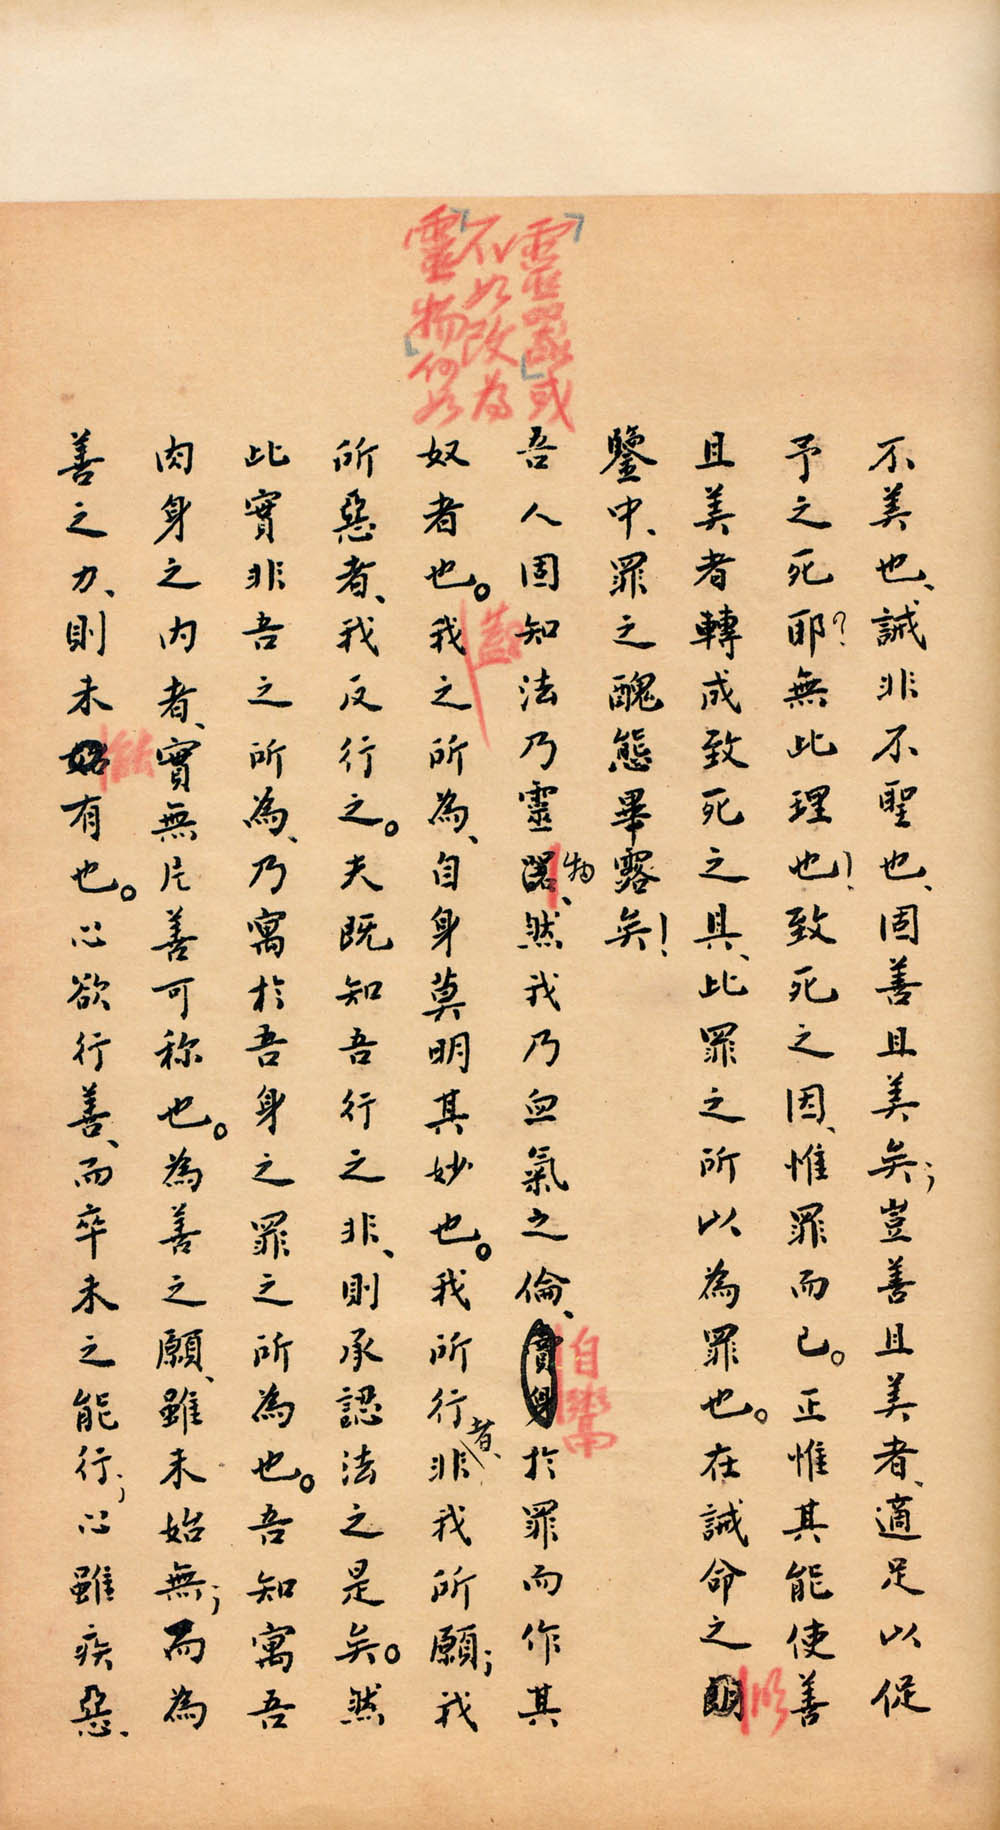 「靈器」或
不如改為
「靈物」何如
不美也、誡非不聖也、固善且美矣；豈善且美者、適足以促
予之死耶？無此理也！致死之因、惟罪而已。正惟其能使善
且美者轉成致死之具、此罪之所以為罪也。在誡命之明
明
鑒中、罪之醜態畢露矣！
吾人固知法乃靈物、然我乃血氣之倫、賣身於罪而作其
物
自鬻
奴者也。我之所為、自身莫明其妙也。我所行者、非我所願；我
蓋
所惡者、我反行之。夫既知吾行之非、則承認法之是矣。然
此實非吾之所為、乃寓於吾身之罪之所為也。吾知寓吾
肉身之內者、實無片善可称也。為善之願、雖未始無；而為
善之力、則未始有也。心欲行善、而卒未之能行；心雖疾惡、